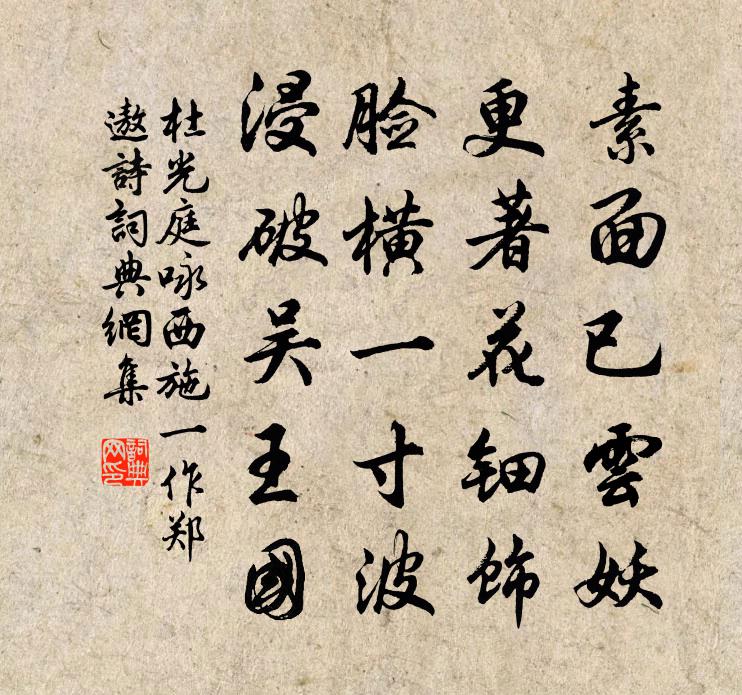 素面已雲妖
更著花钿饰
脸横一寸波
浸破吴王國
杜光庭咏西施一作郑
遨詩詞典網集
詞典网印